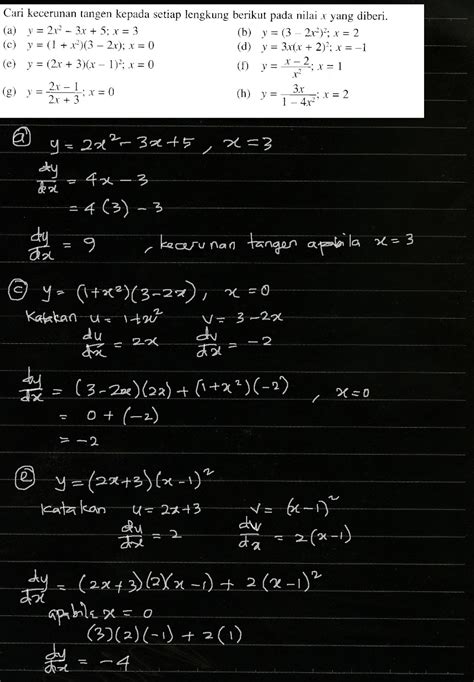 Cari kecerunan tangen kepada setiap lengkung berikut pada nilai x yang diberi.
(a) y = 2x² – 3x + 5; x = 3
(b) y = (3 – 2x²)²; x = 2
(c) y = (1 + x²)(3 – 2x); x = 0
(d) y = 3x(x + 2)²; x = –1
(e) y = (2x + 3)(x – 1)²; x = 0
(f) y = (x – 2)/x²; x = 1
(g) y = (2x – 1)/(2x + 3); x = 0
(h) y = 3x/(1 – 4x²); x = 2
(a) y = 2x² – 3x + 5 , x = 3
dy/dx = 4x – 3
= 4(3) – 3
dy/dx = 9 , kecerunan tangen apabila x = 3
(c) y = (1+x²)(3–2x) , x = 0
Katakan u = 1+x² v = 3–2x
du/dx = 2x dv/dx = –2
dy/dx = (3–2x)(2x) + (1+x²)(–2) , x=0
= 0 + (–2)
= –2
(e) y = (2x+3)(x–1)²
katakan u = 2x+3 v = (x–1)²
du/dx = 2 dv/dx = 2(x–1)
dy/dx = (2x+3)(2)(x–1) + 2(x–1)²
apabila x = 0
(3)(2)(–1) + 2(1)
dy/dx = –4